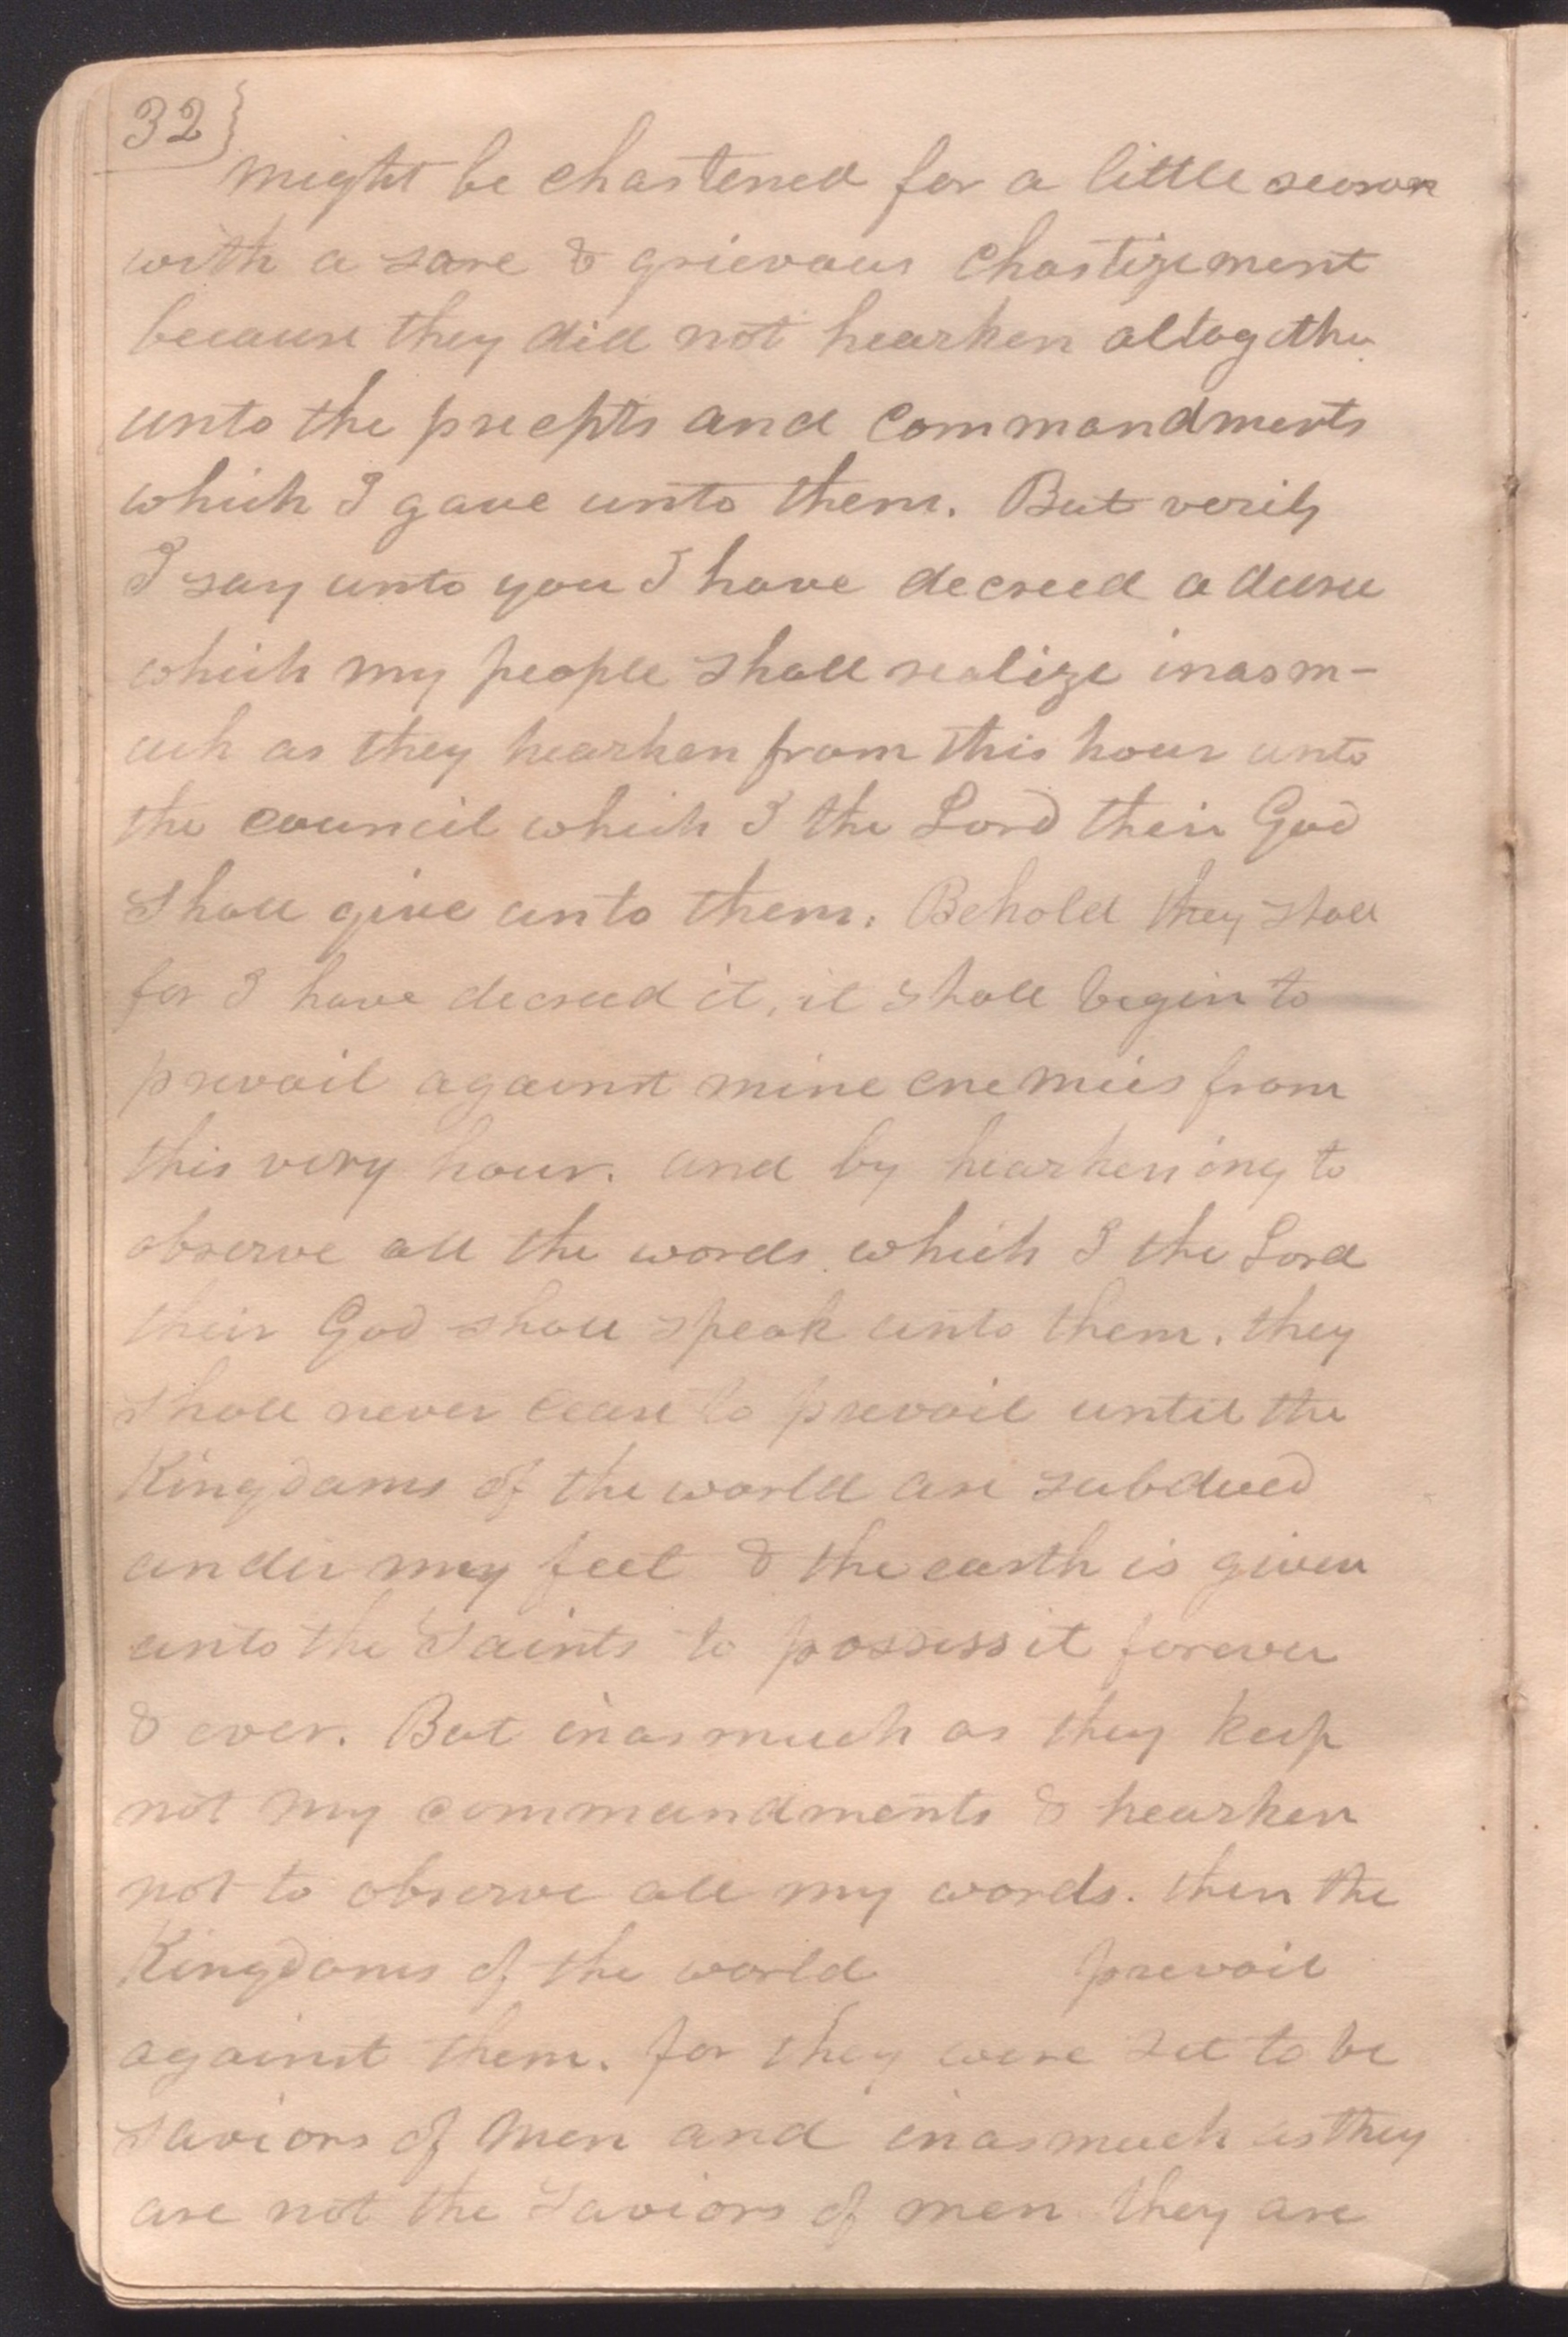 32}
might be chastened for a little season
with a sore & grievous chastizement
because they did not hearken altogether
unto the precepts and commandments
which I gave unto them. But verily
I say unto you I have decreed a decree
which my people shall realize inasm-
uch as they hearken from this hour unto
the council which I the Lord their God
shall give unto them. Behold they shall
for I have decreed it, it shall begin to
prevail against mine enemies from
this very hour. and by hearkening to
observe all the words which I the Lord
their God shall speak unto them. they
shall never cease to prevail until the
Kingdoms of the world are subdued
under my feet & the earth is given
unto the Saints to possess it forever
& ever. But inasmuch as they keep
not my commandments & hearken
not to observe all my words. then the
Kingdoms of the world prevail
against them. for they were set to be
saviors of men and inasmuch as they
are not the saviors of men they are